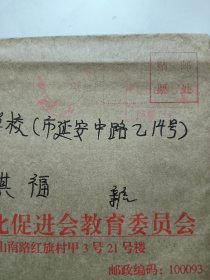 贴邮
票处
学校(市延安中路乙14号)
祺福
北促进会教育委员会
山南路红旗村甲3号21号楼
邮政编码：100093